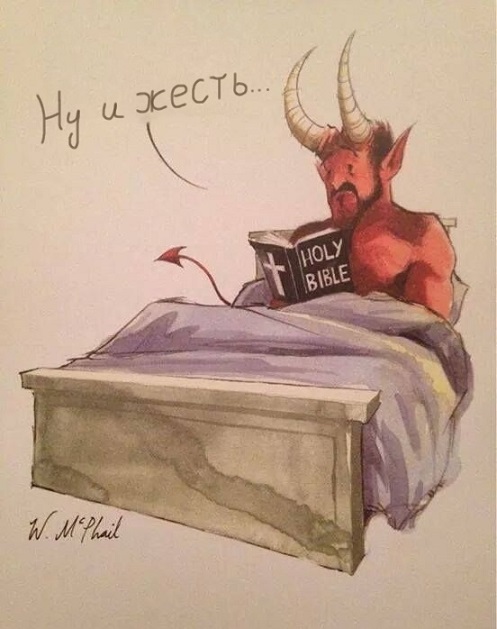 Ну и жесть...
HOLY
BIBLE
W. McPhail